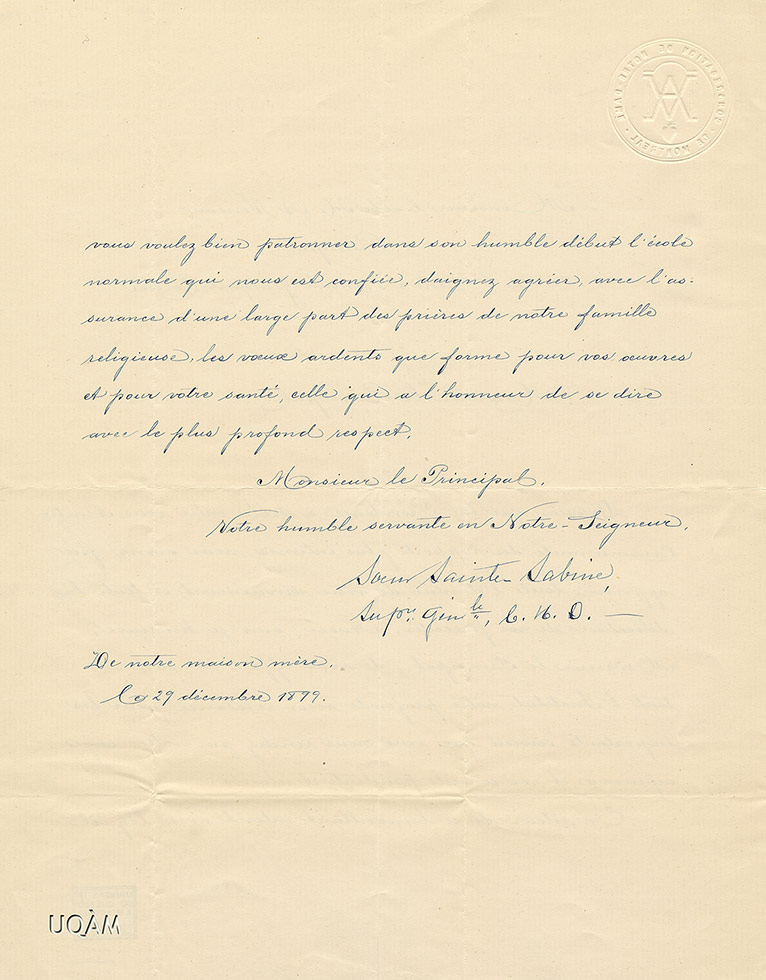 CONGREGATION DE NOTRE DAME
DE MONTREAL
vous voulez bien patronner dans son humble début l'école
normale qui nous est confiée, daignez agréer, avec l'as-
surance d'une large part des prières de notre famille
religieuse, les vœux ardents que forme pour vos œuvres
et pour votre santé, celle qui a l'honneur de se dire
avec le plus profond respect,
Monsieur le Principal,
Votre humble servante en Notre-Seigneur,
Sœur Sainte-Sabine,
Supr. Génle, C. N. D. —
De notre maison mère,
Le 29 décembre 1899.
UQÀM